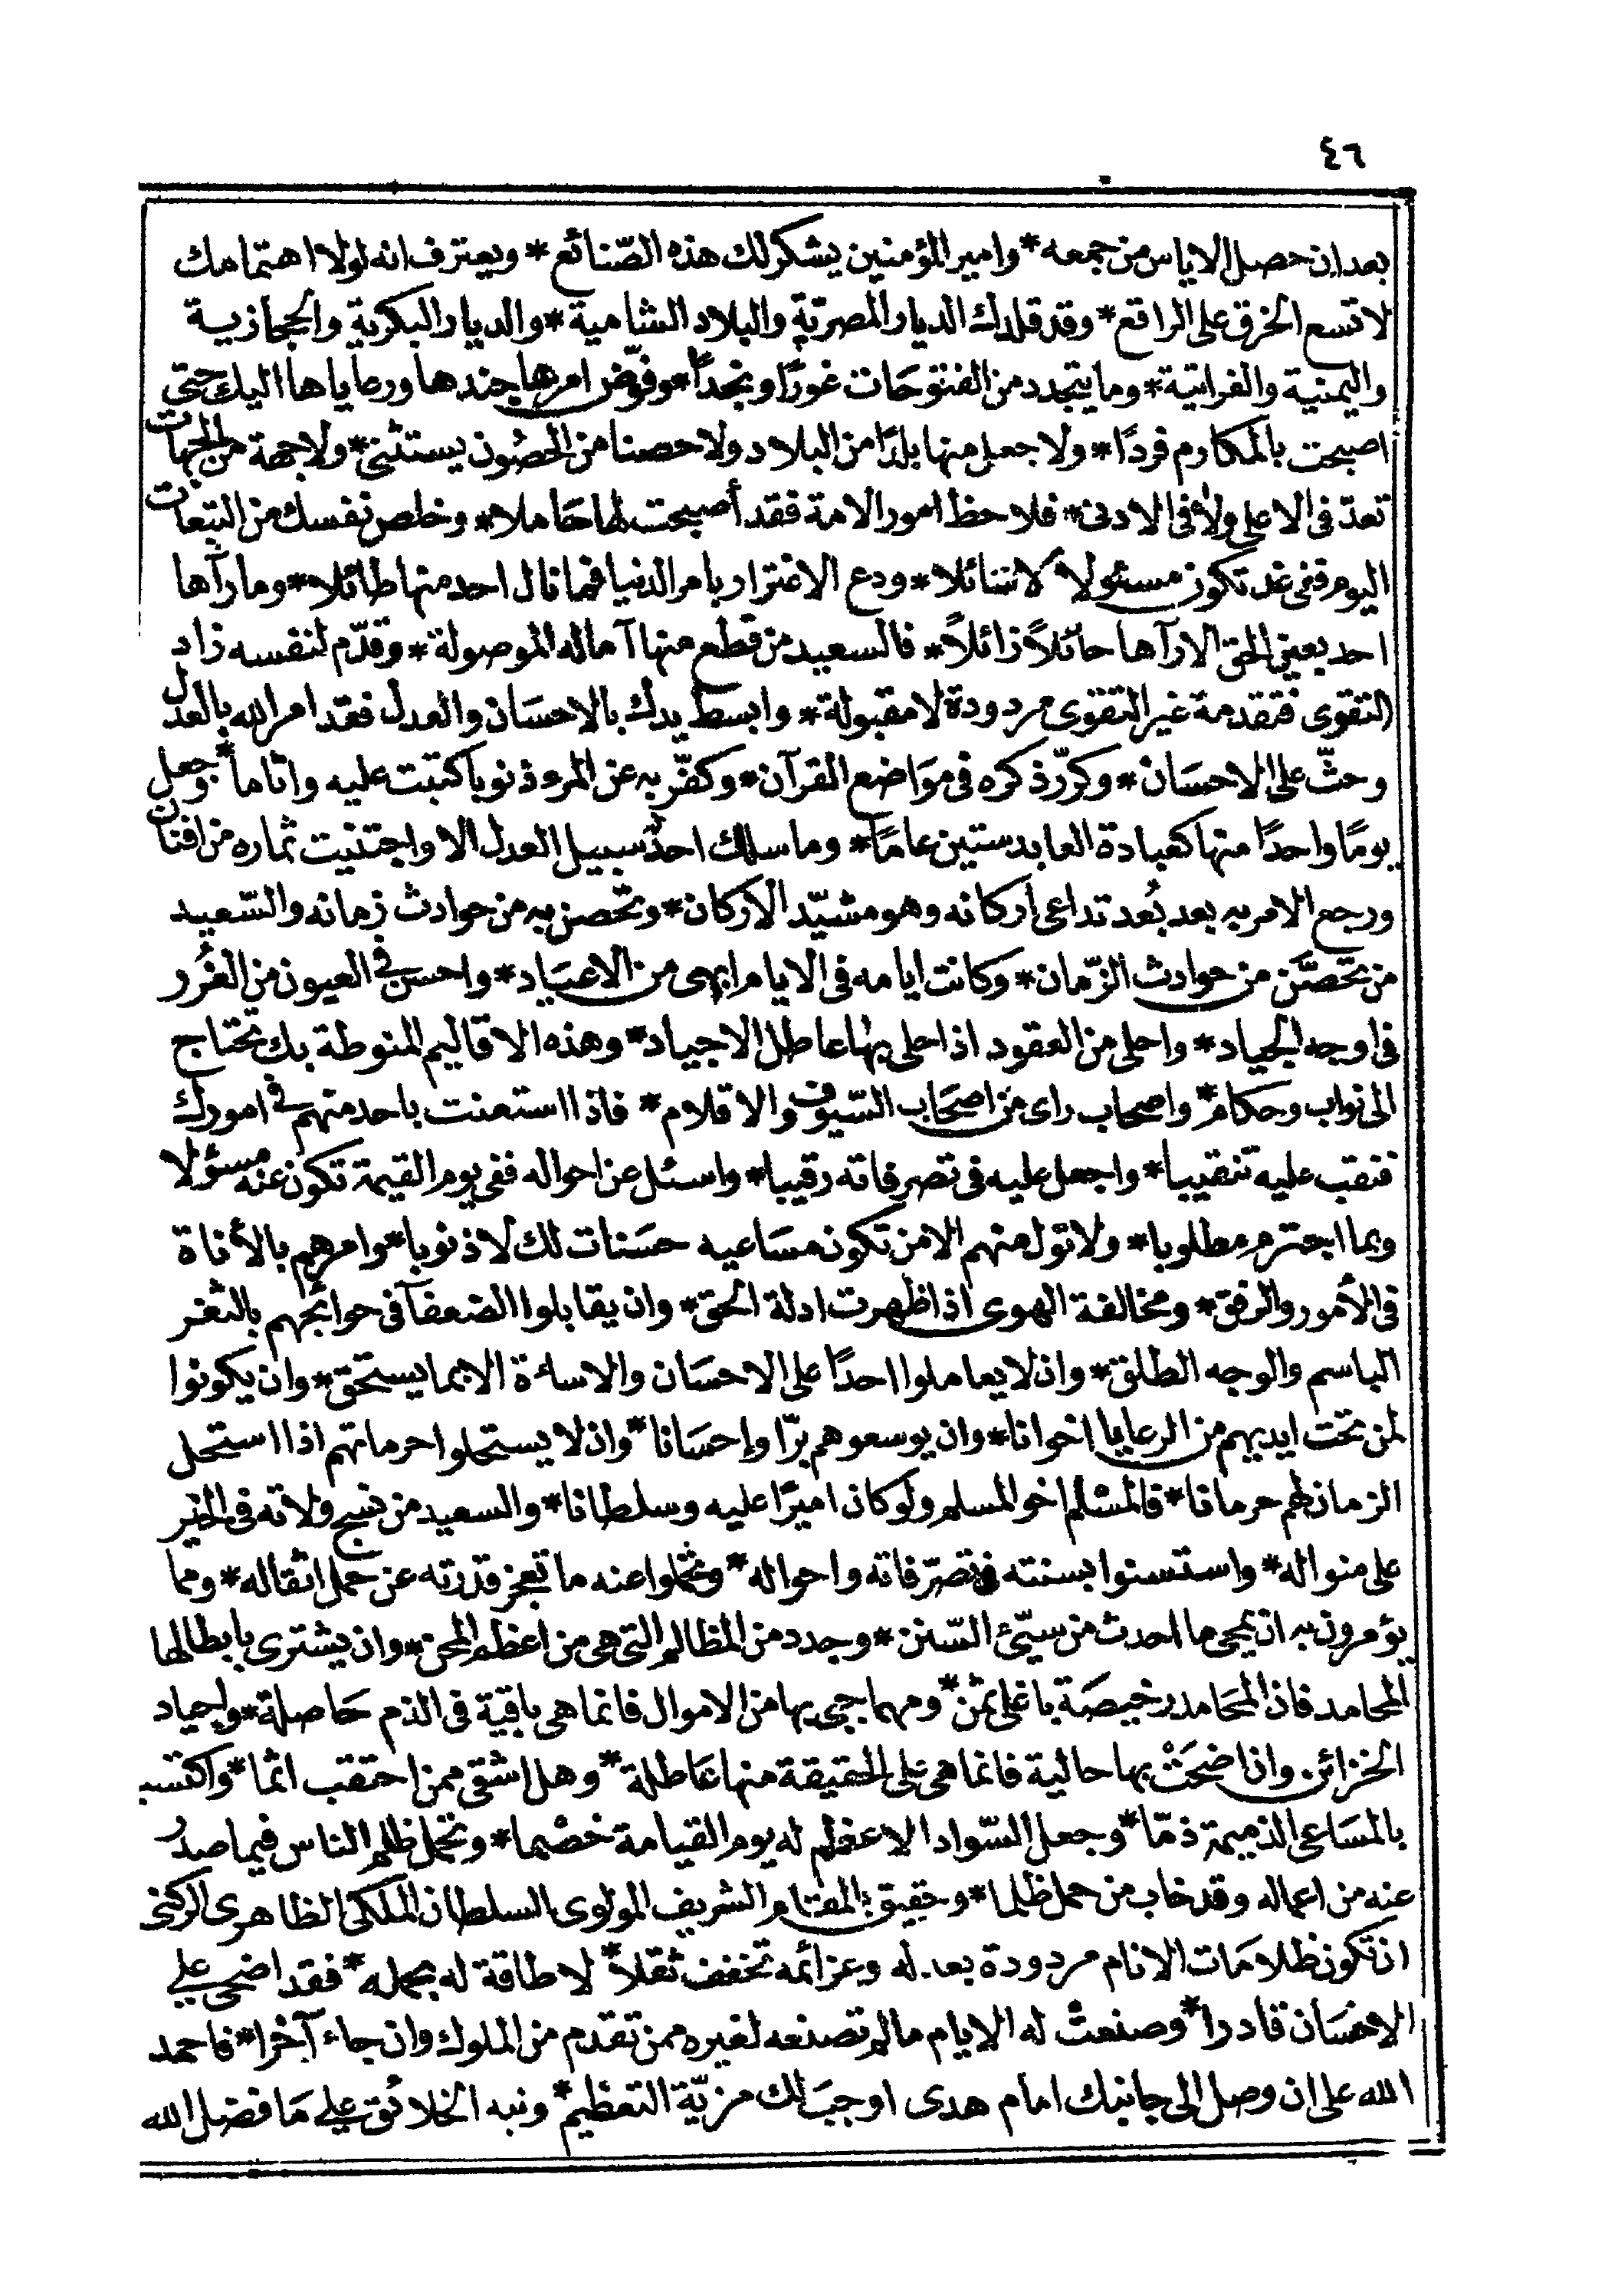 ٤٦
بعد ان حصل الاياس من جمعه * وامير المؤمنين يشكر لك هذه الصّنائع * ويعترف انه لولا اهتمامك
لاتسع الخرق على الراقع * وقد قلدك الديار المصريّة والبلاد الشامية * والديار البكرية والحجازية
واليمنية والفراتية * وما يتجدد من الفتوحات غورًا ونجدًا * وفوّض امر هاجندها ورعاياها اليك حتى
اصبحت بالمكارم فردًا * ولا جعل منها بلدًا من البلاد ولا حصنا من الحصُون يستثنى * ولا جهة من الجهات
تعدّ فى الاعلى ولا فى الادنى * فلاحظ امور الامة فقد أصبحت لها حَاملا * وخلص نفسك من التبعات
اليوم ففى غد تكون مسئولا لا سَائلا * ودع الاغترار بامر الدنيا فما نال احد منها طائلا * وما رآها
احد بعين الحق الا رآها حائلاً زائلاً * فالسعيد من قطع منها آماله الموصولة * وقدّم لنفسه زاد
التقوى فتقدمة غير التقوى مردودة لا مقبولة * وابسط يدك بالاحسَان والعدل فقد امر الله بالعدل
وحثّ على الاحسَان * وكرّر ذكره فى موَاضع القرآن * وكفّر به عن المرء ذنوبا كتبت عليه واثاما * وجعل
يومًا واحدًا منها كعبادة العابد ستين عامًا * وما سلك احد سبيل العدل الا واجتنيت ثماره من افنان
ورجع الامر به بعد بُعد تداعى اركانه وهو مشيّد الاركان * وتحصن به من حوادث زمانه والسّعيد
من تحصَّن من حوادث الزّمان * وكانت ايامه فى الايام ابهى من الاعيَاد * واحسن فى العيون من الغُرر
فى اوجه الجياد * واحلى من العقود اذا حلى بها عاطل الاجياد * وهذه الاقاليم المنوطة بك تحتاج
الى نواب وحكام * واصحاب راى من اصحَاب السّيوف والاقلام * فاذا استعنت باحد منهم فى امورك
فنقب عليه تنقيبا * واجعل عليه فى تصرفاته رقيبا * واسئل عن احواله ففى يوم القيمة تكون عنه مسؤلا
وبما اجترم مطلوبا * ولا تول منهم الا من تكون مسَاعيه حسَنات لك لا ذنوبا * وامرهم بالأناة
فى الأمور والرفق * ومخالفة الهوى اذا ظهرت ادلة الحق * وان يقابلوا الضعفآ فى حوائجهم بالثغر
الباسم والوجه الطلق * وان لا يعاملوا احدًا على الاحسَان والاساءة الا بما يستحق * وان يكونوا
لمن تحت ايديهم من الرعايا اخوانا * وان يوسعوهم برّا وإحسَانا * وان لا يستحلوا حرماتهم اذا استحل
الزمان لهم حرمانا * فالمسْلم اخو المسلم ولو كان اميرًا عليه وسلطانا * والسعيد من نسج ولاته فى الخير
على منواله * واستسنوا بسنته فى تصرّفاته واحواله * وتحملوا عنه ما تعجز قدرته عن حمل اثقاله * ومما
يؤمرون به ان يمحى ما احدث من سيّئ السّنن * وجدد من المظالم التى هى من اعظم المحن * وان يشترى بابطالها
المحامد فان المحَامد رخيصَة باغلى ثمن * ومهما جبى بها من الاموال فانما هى باقية فى الذم حَاصلة * واجياد
الخزائن وان اضحَتْ بها حالية فانما هى على الحقيقة منها عَاطلة * وهل اشقى ممن احتقب اثما * واكتسب
بالمسَاعى الذميمة ذمّا * وجعل السّواد الاعظم له يوم القيامة خصْما * وتحمل ظلم الناس فيما صدر
عنه من اعماله وقد خاب من حمل ظلما * وحقيق بالمقام الشريف المولوى السلطان الملكى الظاهرى الركنى
ان تكون ظلامَات الانام مردودة بعدله وعزائمه تخفف ثقلاً لا طاقة له بحمله * فقد اضحى على
الاحسَان قادرا * وصنعتْ له الايام ما لم تصنعه لغيره ممن تقدم من الملوك وان جاء آخرا * فاحمد
الله على ان وصل الى جانبك امام هدى اوجبَ لك مزيّة التعظيم * ونبه الخلائق على مَا فضل الله